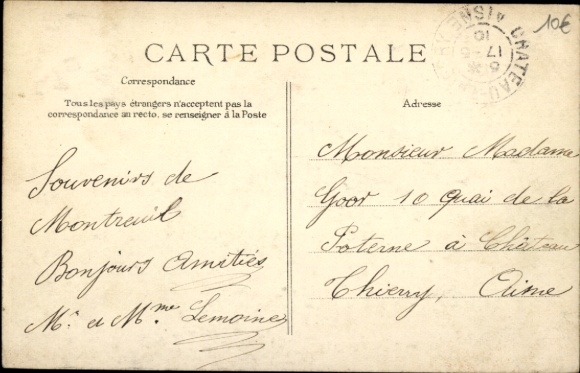 10€
CHATEAU
AISNE
17 -5
10
CARTE POSTALE
Correspondance
Tous les pays étrangers n'acceptent pas la
correspondance au recto. se renseigner à la Poste
Adresse
Souvenirs de
Montreuil
Bonjours Amitiés
Mr et Mme Lemoine
Monsieur Madame
Goor 10 Quai de la
Poterne à Château
Thierry, Aisne